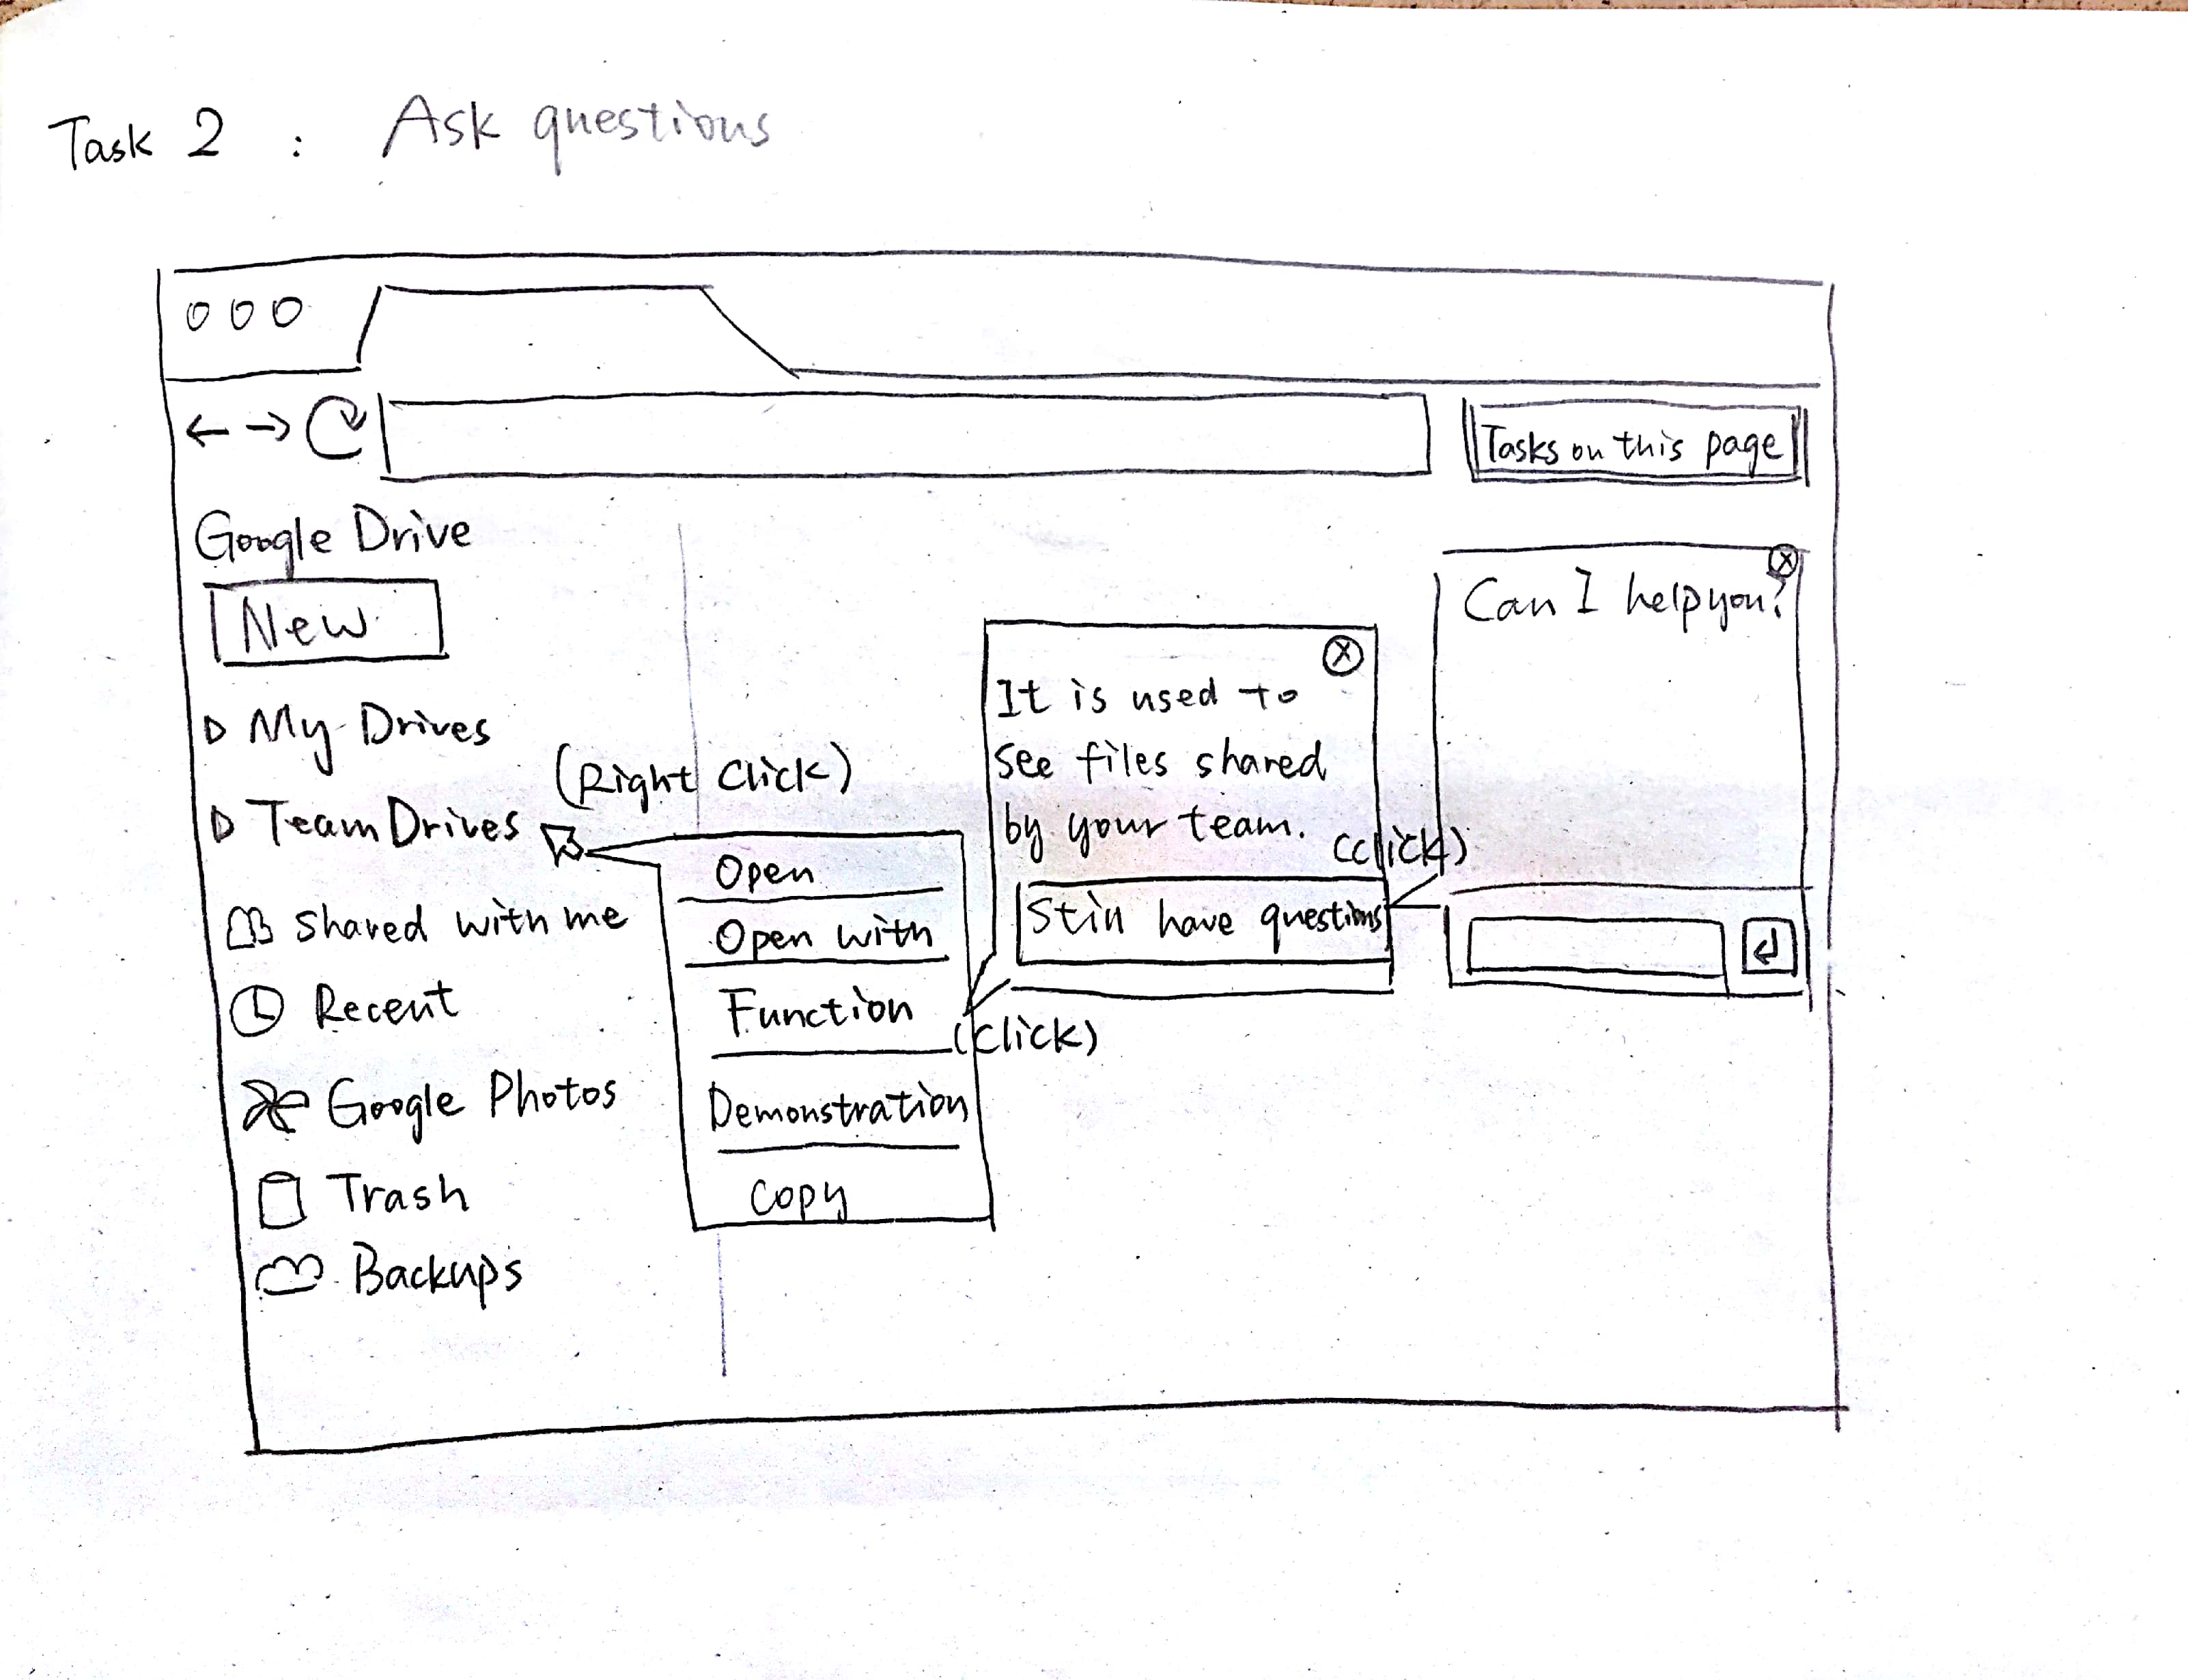 Task 2 : Ask questions
Tasks on this page
Google Drive
New
My Drives
Team Drives
Shared with me
Recent
Google Photos
Trash
Backups
(Right Click)
Open
Open with
Function
Demonstration
Copy
(Click)
It is used to
see files shared
by your team.
Still have questions
(Click)
Can I help you?